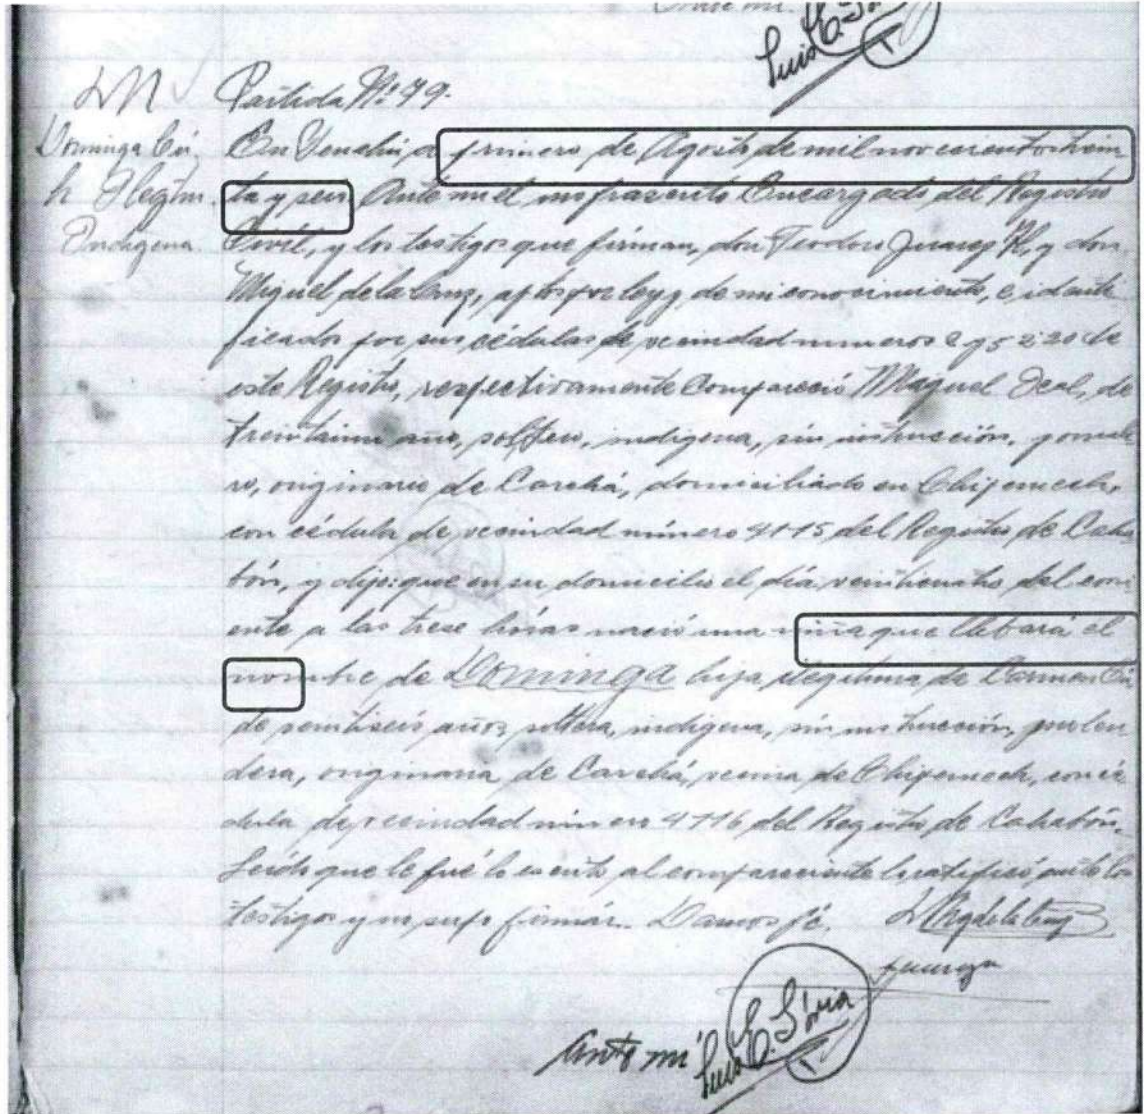 Ante mí.
Luis E. Soria
LM Partida No. 99.
Dominga Cú. En Senahú, a primero de Agosto de mil novecientos trein
h. Ilegtm. ta y seis Ante mi el infrascrito Encargado del Registro
Indígena. Civil, y los testigos que firman, don Teodoro Juarez H, y don
Miguel de la Cruz, aptos por ley y de mi conocimiento, e identi
ficados por sus cédulas de vecindad numeros de
este Registro, respectivamente Compareció Miguel Ical, de
treintaiun año, soltero, indigena, sin instrucción, jornale
ro, originario de Carchá, domiciliado en Chipemech,
con cédula de vecindad número 4715 del Registro de Caha
bón, y dijo: que en su domicilio el día veinticuatro del corri
ente a las trese horas nació una niña que llebará el
nombre de Dominga hija ilegitima de Carmen Cú
de veintiseis años, soltera, indigena, sin instrucción, molen
dera, originaria de Carchá, vecina de Chipemech, con cé
dula de vecindad número 4716 del Registro de Cahabón.
Leido que le fué lo escrito al compareciente lo ratificó ante los
testigos y no supo firmar. Damos fé.
Ante mí Luis E. Soria